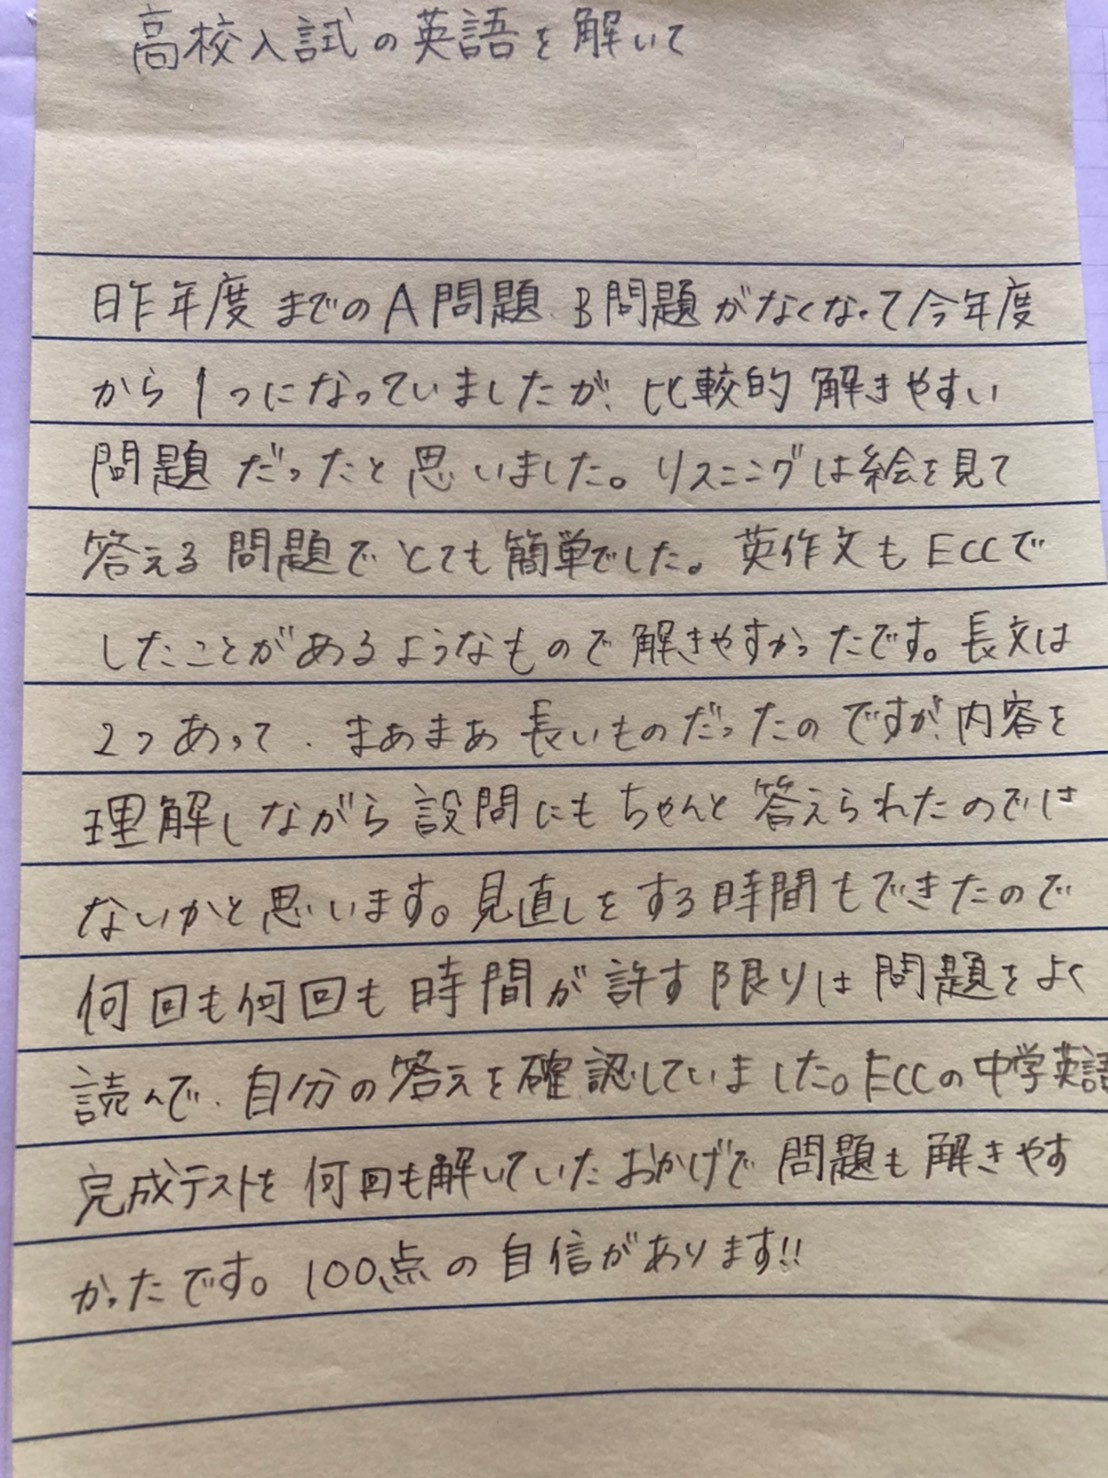 高校入試の英語を解いて
昨年度までのA問題、B問題がなくなって今年度
から1つになっていましたが、比較的解きやすい
問題だったと思いました。リスニングは絵を見て
答える問題でとても簡単でした。英作文もECCで
したことがあるようなもので解きやすかったです。長文は
2つあって、まあまあ長いものだったのですが、内容を
理解しながら設問にもちゃんと答えられたのでは
ないかと思います。見直しをする時間もできたので
何回も何回も時間が許す限りは問題をよく
読んで、自分の答えを確認していました。ECCの中学英語
完成テストを何回も解いていたおかげで問題も解きやす
かったです。100点の自信があります!!